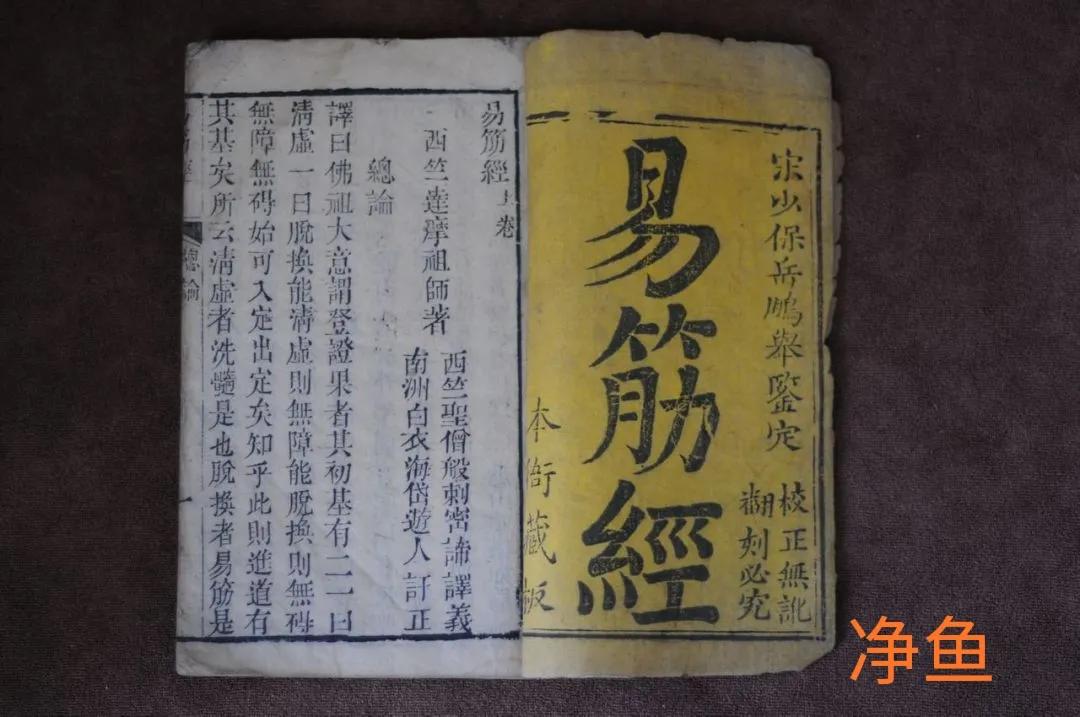 宋少保岳鵬舉鑒定
校正無訛
翻刻必究
易筋經
本衙藏板
易筋經上卷
西竺達摩祖師著
西竺聖僧般剌密諦譯義
南洲白衣海岱遊人訂正
總論
譯曰佛祖大意謂登證果者其初基有二一曰
淸虛一曰脫換能淸虛則無障能脫換則無碍
無障無碍始可入定出定矣知乎此則進道有
其基矣所云淸虛者洗髓是也脫換者易筋是
總論
一
净鱼